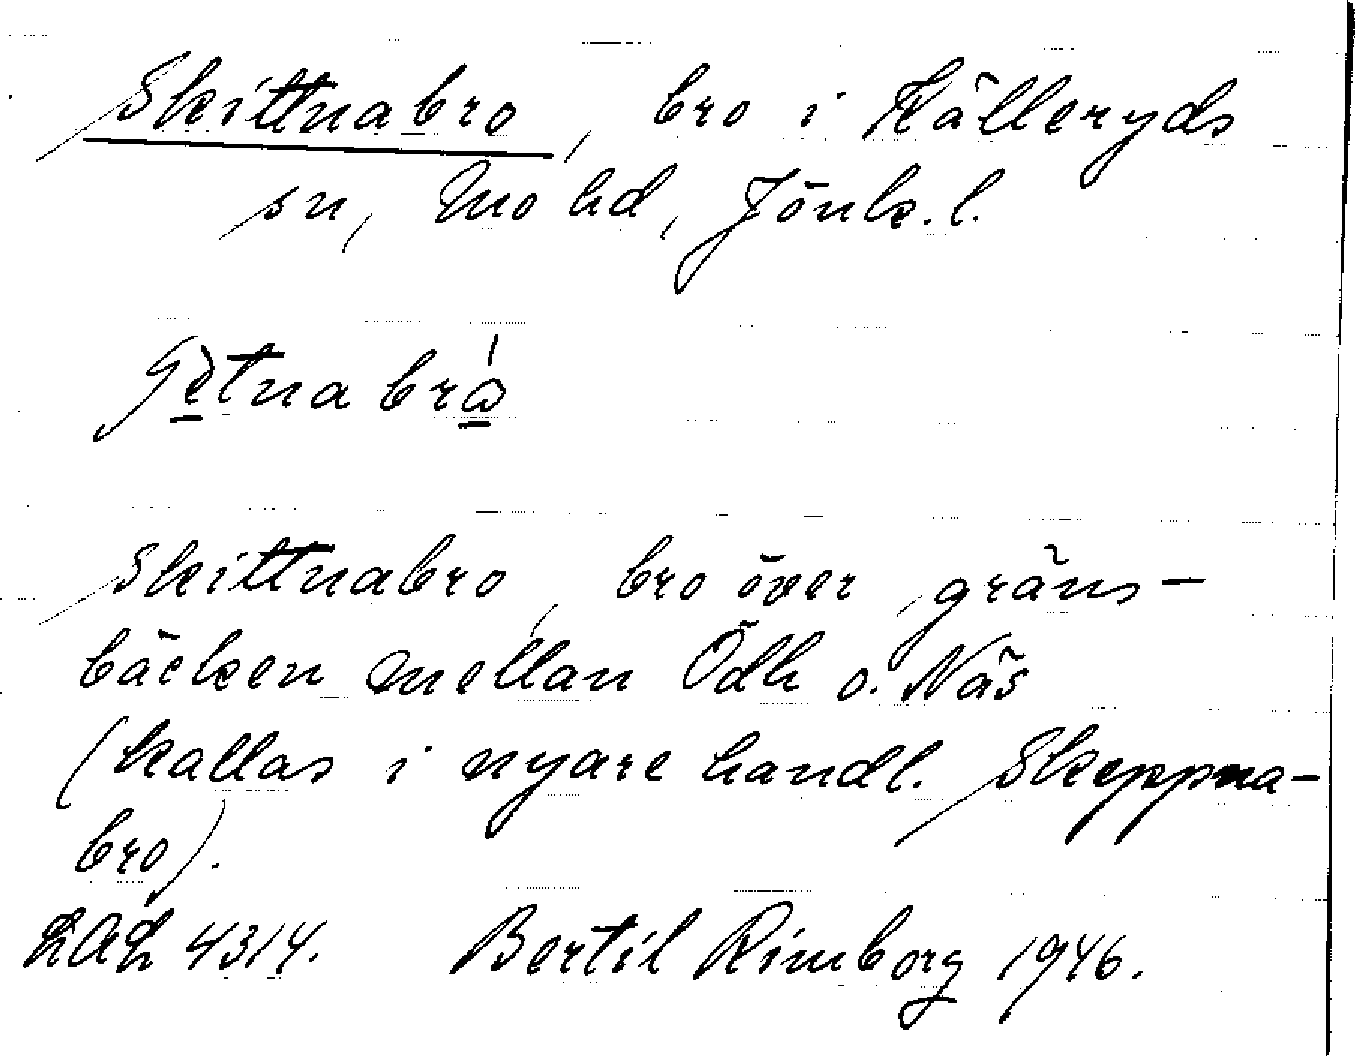 Skittnabro, bro i Källeryds
sn, Mo hd, Jönk. l.
Skittnabro, bro över gräns-
bäcken mellan Ödh o. Näs
(kallas i nyare handl. Skeppna-
bro).
4314. Bertil Rimborg 1946.